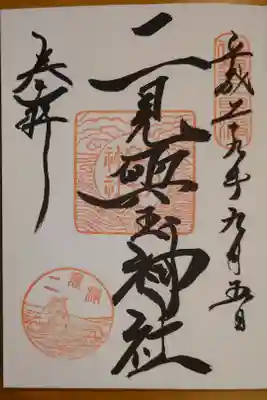 平成二十九年九月五日
二見興玉神社
奉拝